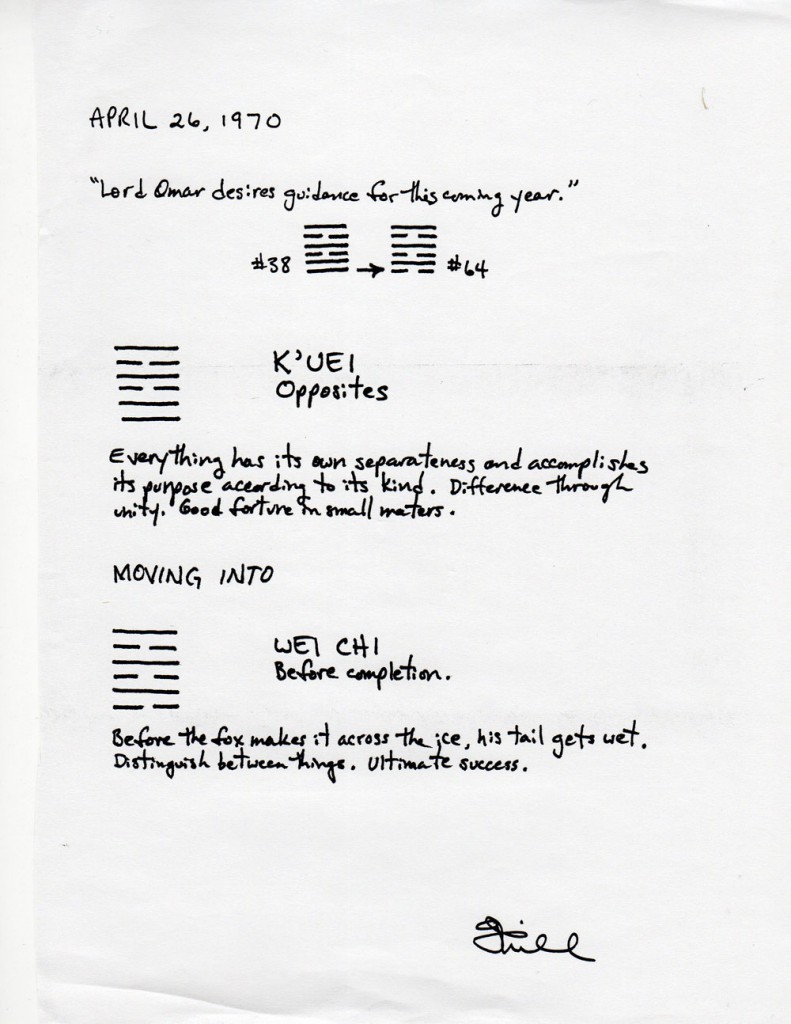 APRIL 26, 1970
"Lord Omar desires guidance for this coming year."
#38 → #64
K'UEI
Opposites
Everything has its own separateness and accomplishes
its purpose aceording to its kind. Difference through
unity. Good fortune in small maters.
MOVING INTO
WEI CHI
Before completion.
Before the fox makes it across the ice, his tail gets wet.
Distinguish between things. Ultimate success.